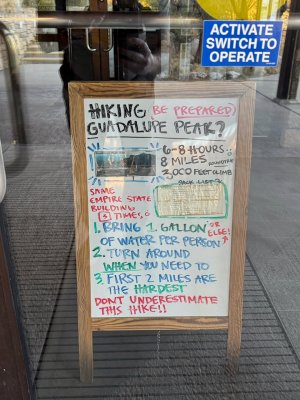 ACTIVATE
SWITCH TO
OPERATE
HIKING BE PREPARED
GUADALUPE PEAK?
6-8 HOURS
8 MILES ROUNDTRIP
3,000 FEET CLIMB
PACK LIST
SAME
EMPIRE STATE
BUILDING
TIMES
1. BRING 1 GALLON OR
ELSE!
OF WATER PER PERSON
2. TURN AROUND
WHEN YOU NEED TO
3. FIRST 2 MILES ARE
THE HARDEST
DONT UNDERESTIMATE
THIS HIKE!!